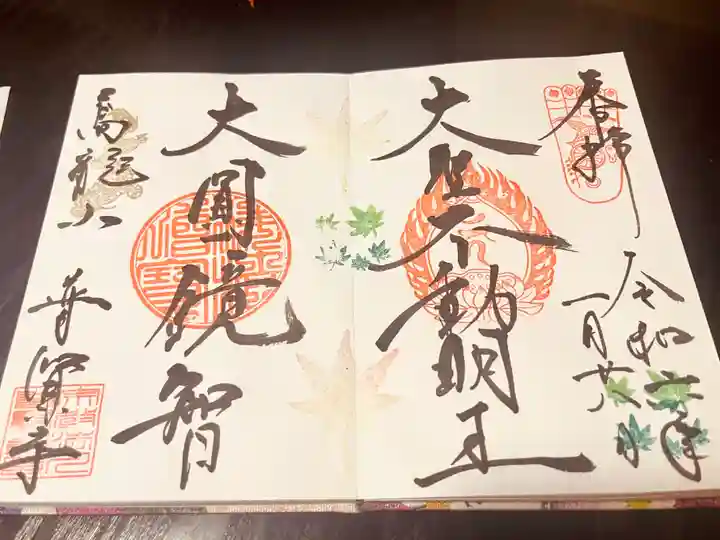 奉拝
令和六年
一月廿八日
大聖不動明王
大圓鏡智
萬龍山
普賢寺